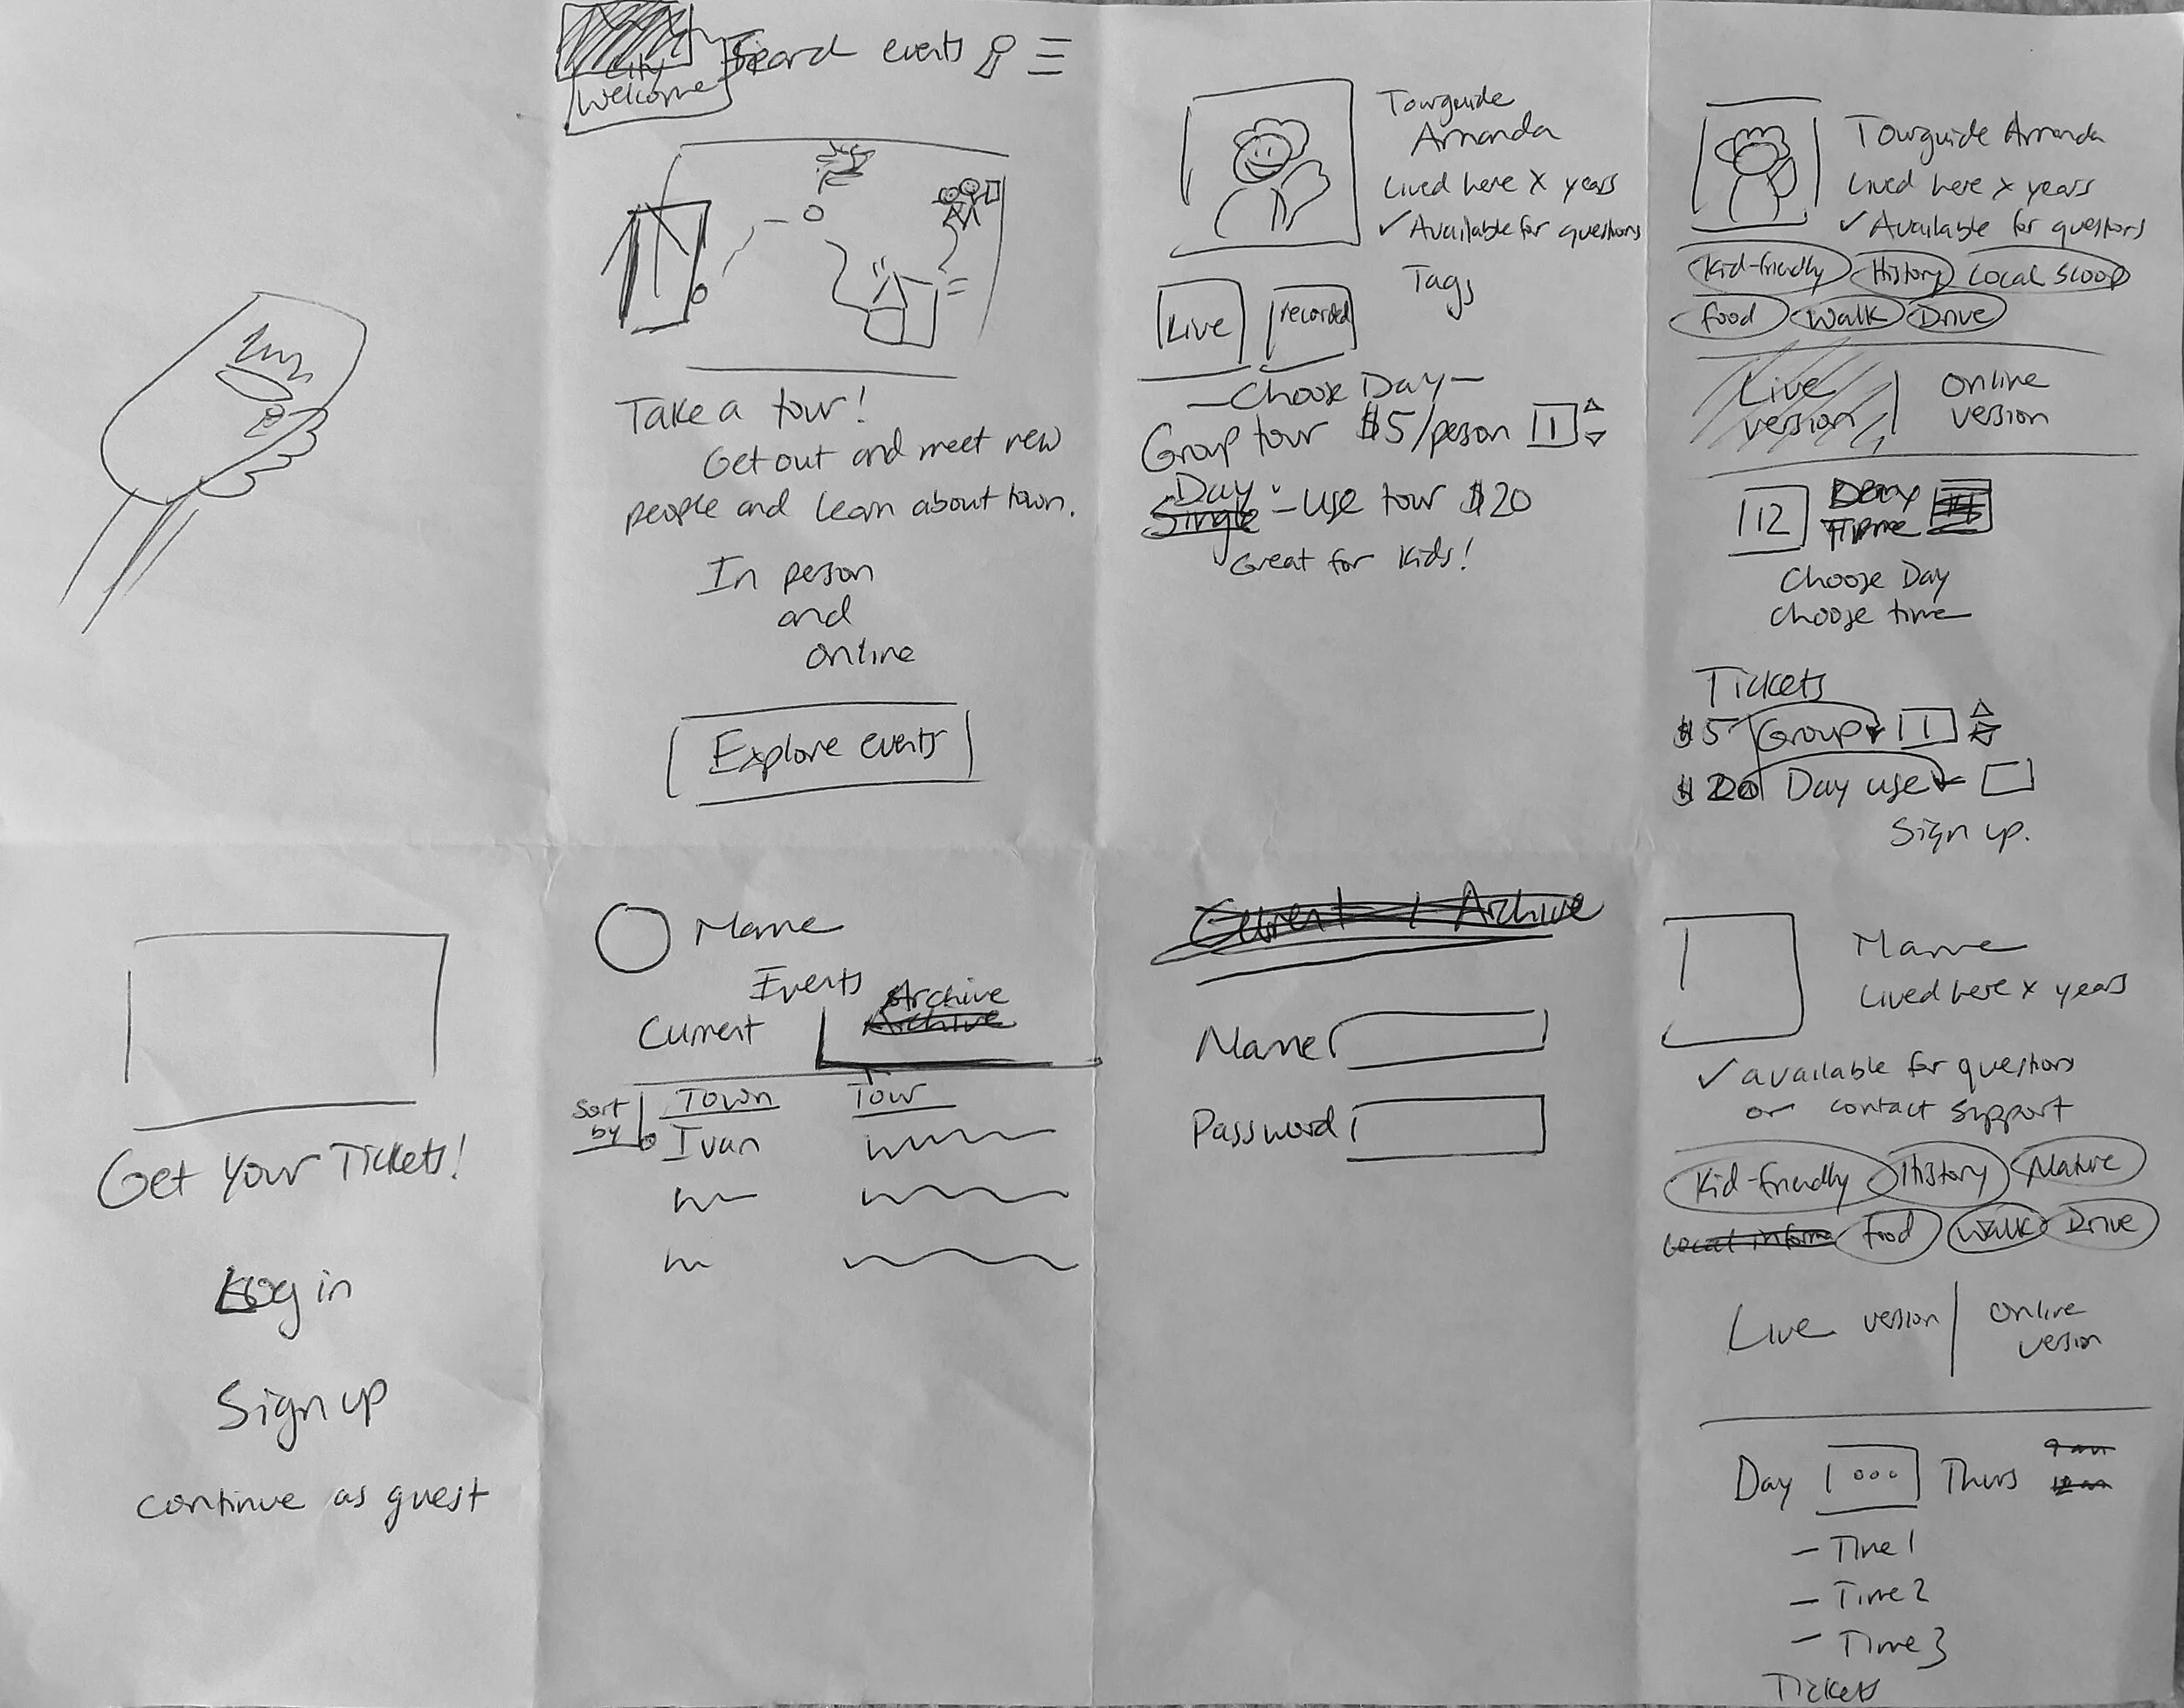 City
Welcome
Search events
Take a tour!
Get out and meet new
people and learn about town.
In person
and
online
Explore events
Tourguide
Amanda
Lived here X years
✓ Available for questions
Tags
Live
recorded
—Choose Day—
Group tour $5/person 1
Day
Single - use tour $20
Great for kids!
Tourguide Amanda
Lived here x years
✓ Available for questions
Kid-friendly History Local Scoop
food Walk Drive
Live version
Online version
12
Day
Time
Choose Day
choose time
Tickets
$5 Group 1
$20 Day use
Sign up.
Get Your Tickets!
Log in
Sign up
continue as guest
Name
Events
Current
Archive
Archive
Sort by
Town Tour
Ivan
Current / Archive
Name
Password
Name
Lived here x years
✓ available for questions
or contact support
Kid-friendly History Nature
Local informa food Walk Drive
Live version
online version
Day Thurs
9 am
- Time 1
- Time 2
- Time 3
Tickets